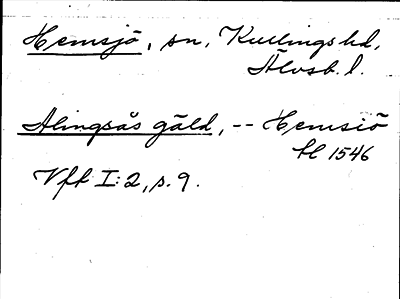 Hemsjö, sn, Kullings hd,
Älvsb. l.
Alingsås gäld, -- Hemsiö
tl 1546
Vft I:2, s. 9.